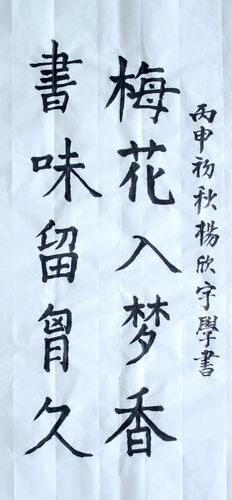 書味留胷久
梅花入梦香
丙申初秋楊欣宇學書